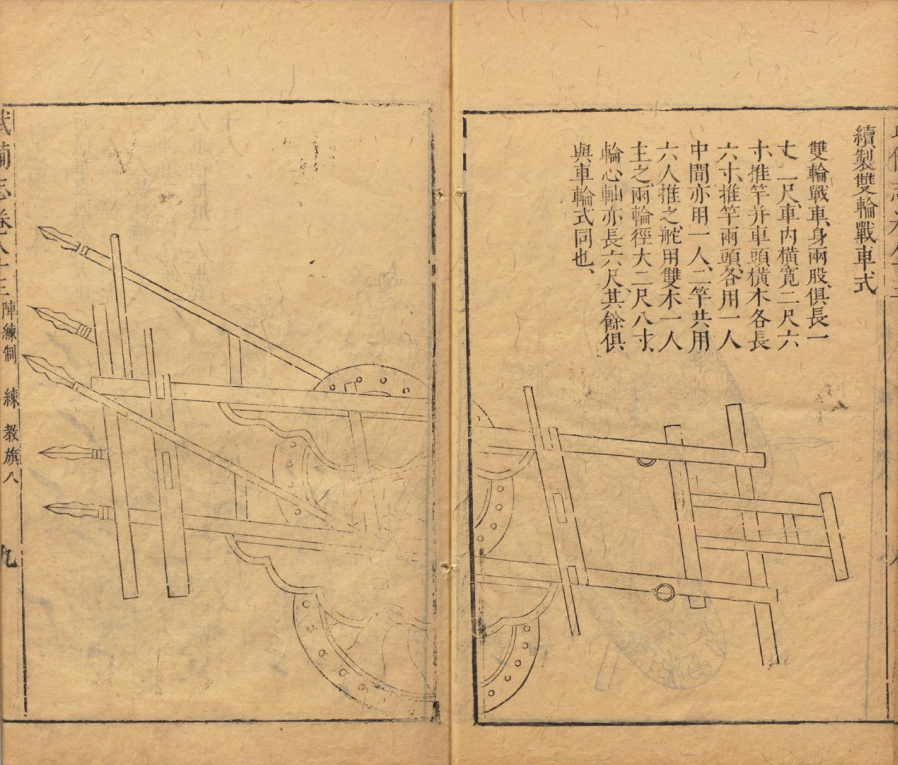 續製雙輪戰車式
雙輪戰車身兩股俱長一
丈二尺車內橫寬二尺六
寸推竿并車頭橫木各長
六寸推竿兩頭各用一人
中間亦用一人二竿共用
六人推之舵用雙木一人
主之兩輪徑大二尺八寸
輪心軸亦長六尺其餘俱
與車輪式同也
武備志卷八十三 陣練制 練 教旗八 九